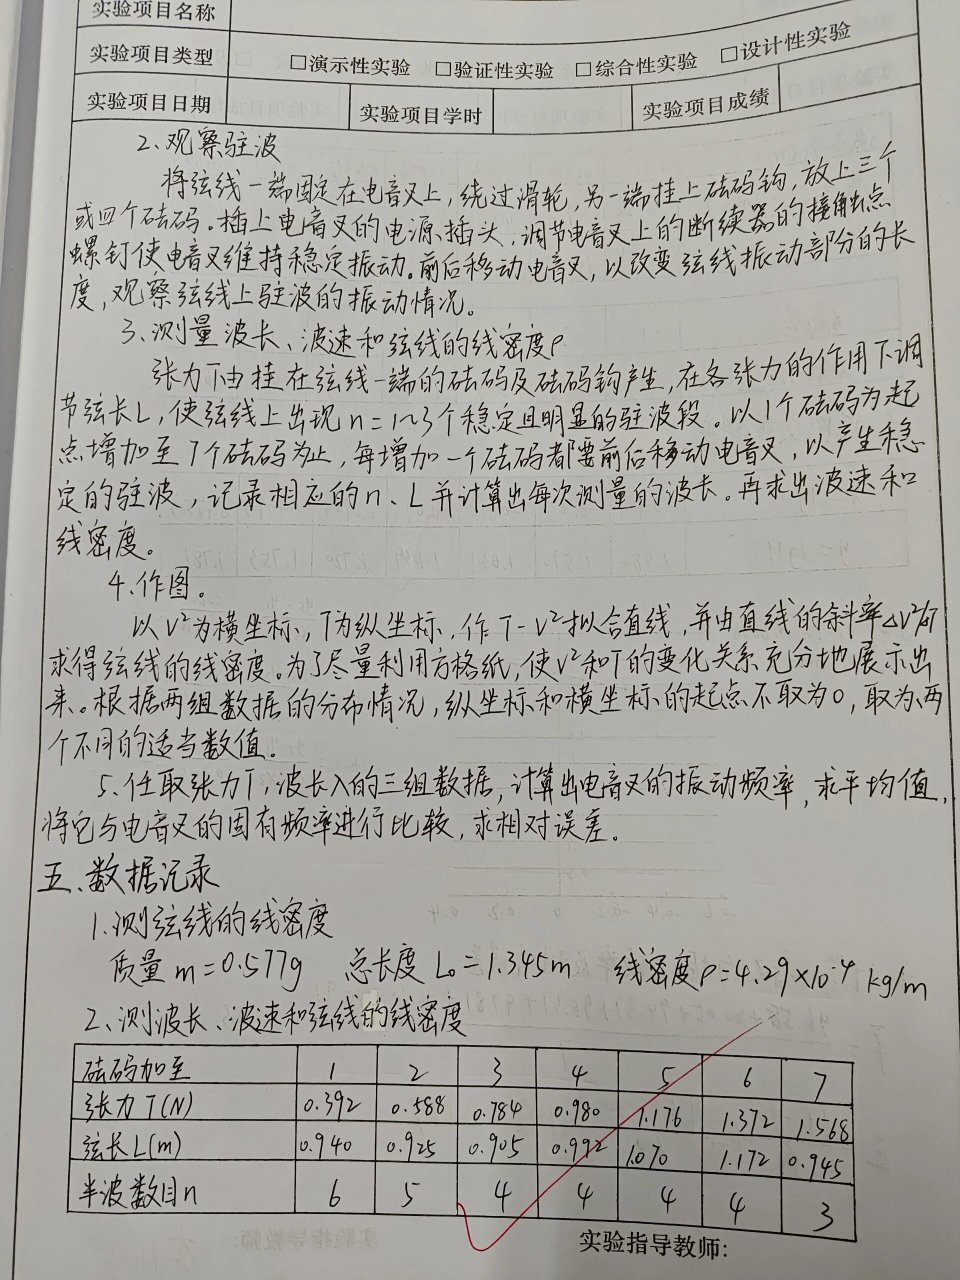 实验项目名称
实验项目类型 □演示性实验 □验证性实验 □综合性实验 □设计性实验
实验项目日期 实验项目学时 实验项目成绩
2.观察驻波
将弦线一端固定在电音叉上,绕过滑轮,另一端挂上砝码钩,放上三个
或四个砝码。插上电音叉的电源插头,调节电音叉上的断续器的接触点
螺钉使电音叉维持稳定振动。前后移动电音叉,以改变弦线振动部分的长
度,观察弦线上驻波的振动情况。
3.测量波长、波速和弦线的线密度ρ
张力T由挂在弦线一端的砝码及砝码钩产生,在各张力的作用下调
节弦长L,使弦线上出现n=1~3个稳定且明显的驻波段。以1个砝码为起
点增加至7个砝码为止,每增加一个砝码都要前后移动电音叉,以产生稳
定的驻波,记录相应的n、L并计算出每次测量的波长。再求出波速和
线密度。
4.作图。
以V²为横坐标,T为纵坐标,作T-V²拟合直线,并由直线的斜率ΔV²/T
求得弦线的线密度。为了尽量利用方格纸,使V²和T的变化关系充分地展示出
来。根据两组数据的分布情况,纵坐标和横坐标的起点不取为0,取为两
个不同的适当数值。
5.任取张力T,波长λ的三组数据,计算出电音叉的振动频率,求平均值,
将它与电音叉的固有频率进行比较,求相对误差。
五、数据记录
1.测弦线的线密度
质量m=0.577g 总长度L₀=1.345m 线密度ρ=4.29×10⁻⁴kg/m
2.测波长、波速和弦线的线密度
砝码加至 1 2 3 4 5 6 7
张力T(N) 0.392 0.588 0.784 0.980 1.176 1.372 1.568
弦长L(m) 0.940 0.925 0.905 0.992 1.070 1.172 0.945
半波数目n 6 5 4 4 4 4 3
实验指导教师: